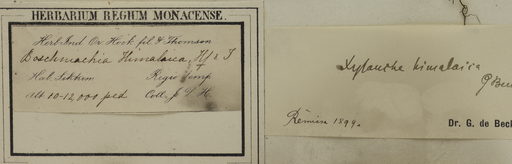 HERBARIUM REGIUM MONACENSE.
Herb. Ind. Or. Hook. fil. & Thomson
Boschniakia Himalaica, Hf & T
Hab. Sikkim Regio temp.
Alt. 10-12,000 ped. Coll. J. D. H.
Xylanche himalaica
G Bec
Revisio 1894.
Dr. G. de Beck